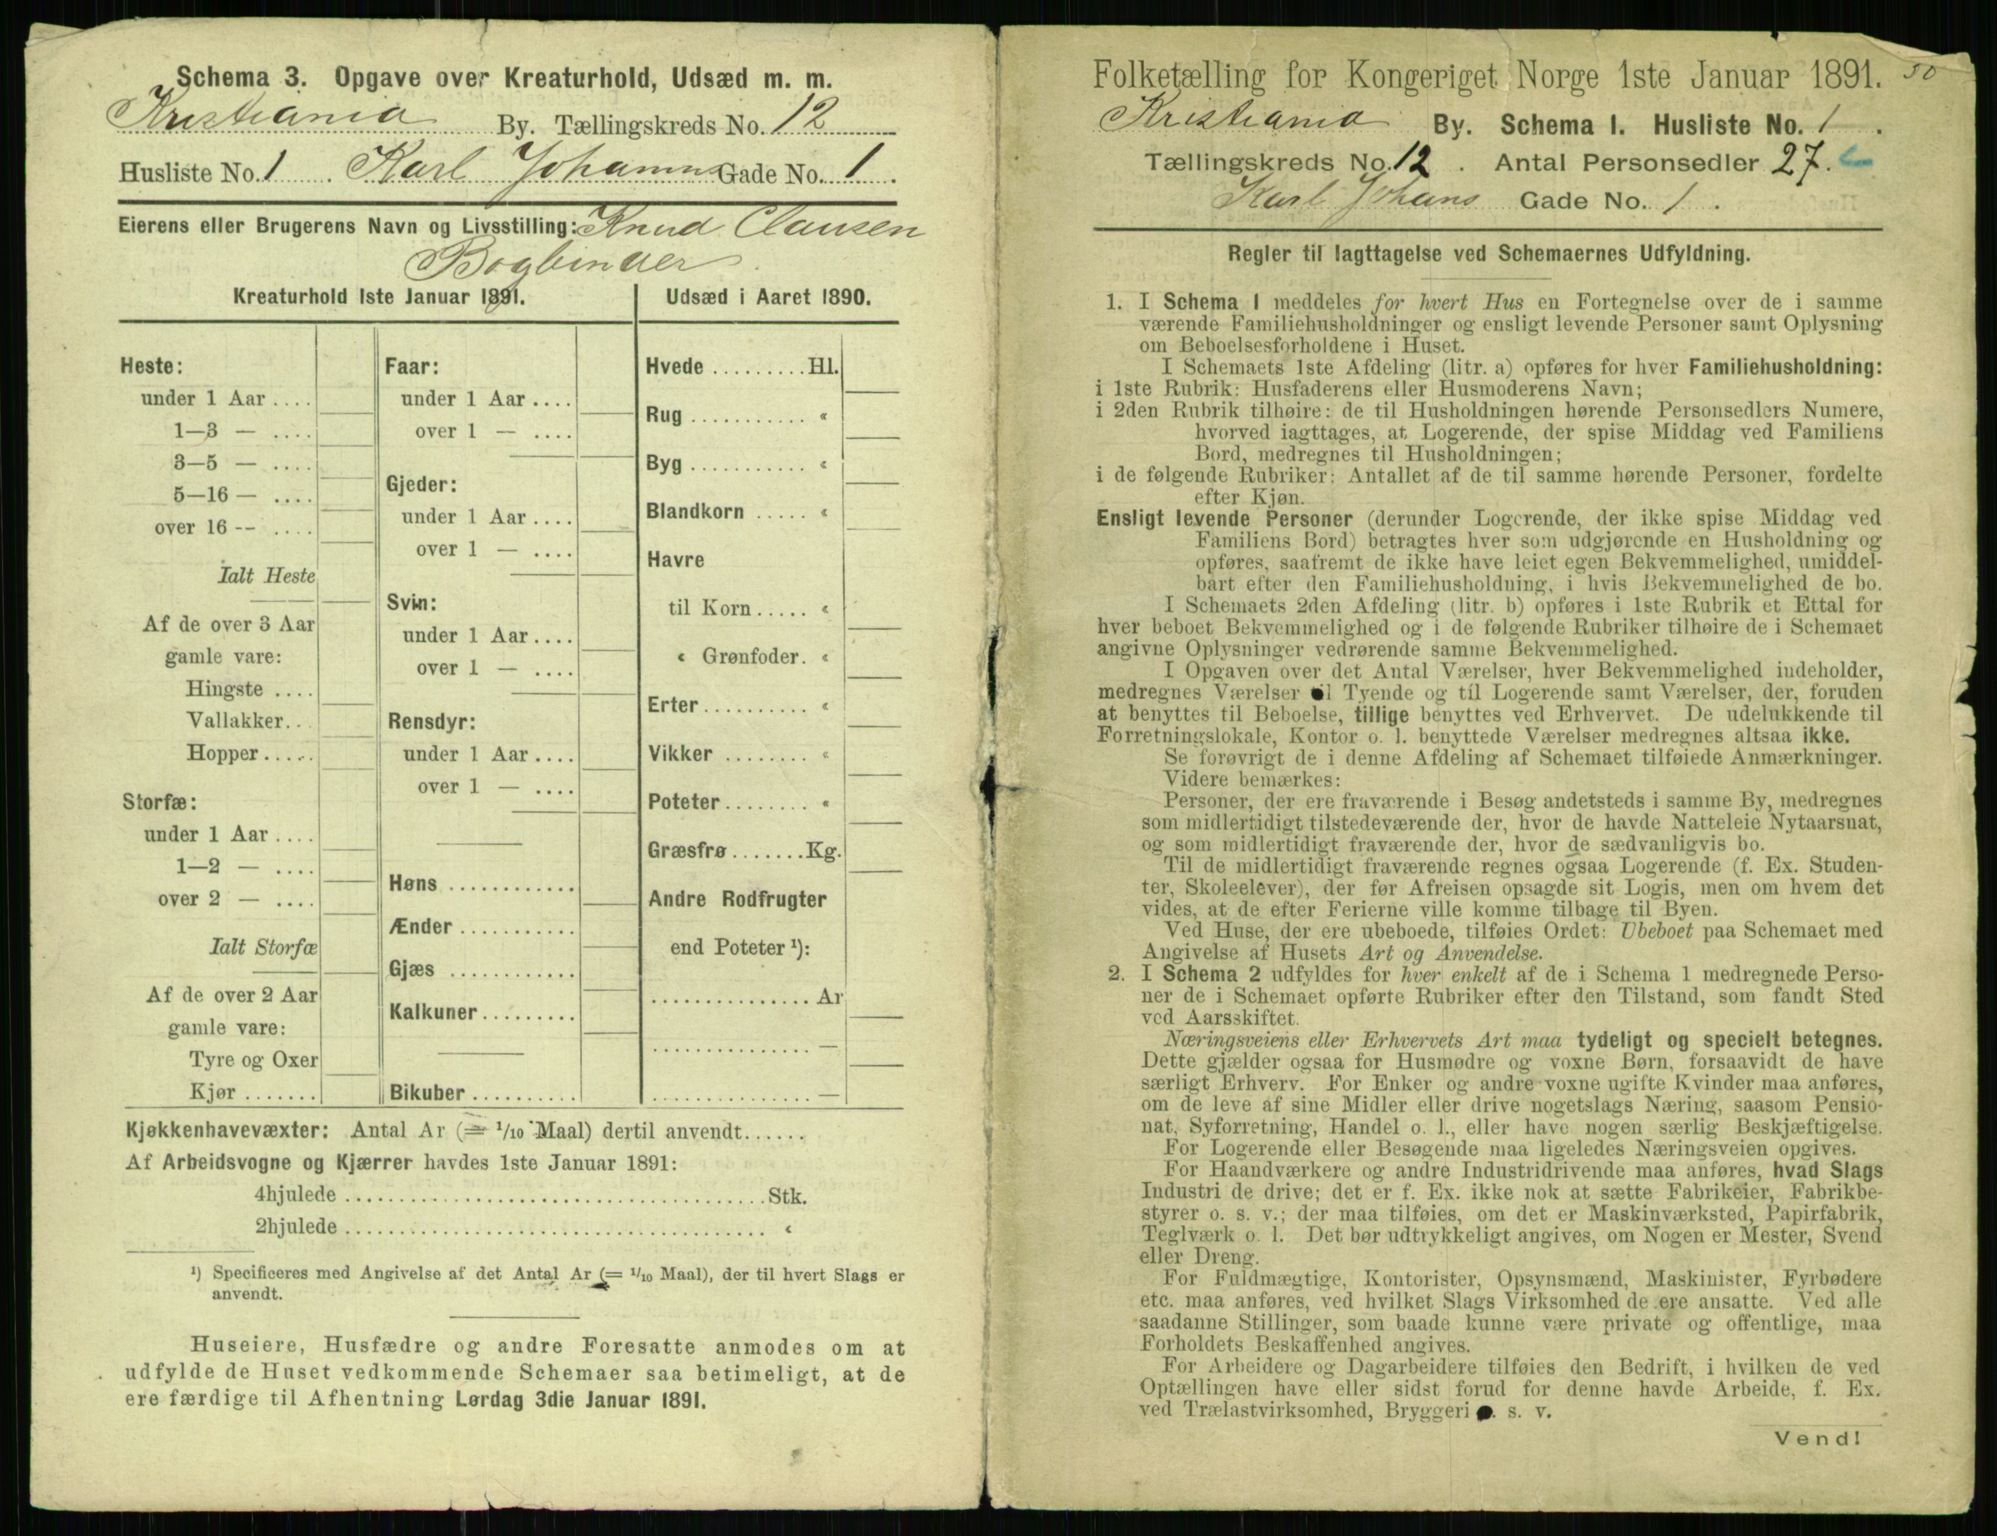 Schema 3. Opgave over Kreaturhold, Udsæd m. m.
Kristiania By. Tællingskreds No. 12
Husliste No. 1 . Karl Johanns Gade No. 1 .
Eierens eller Brugerens Navn og Livsstilling: Knud Clausen
Bogbinder
Kreaturhold 1ste Januar 1891.
Heste:
under 1 Aar ....
1—3 — ....
3—5 — ....
5—16 — ....
over 16 -- ....
Ialt Heste
Af de over 3 Aar
gamle vare:
Hingste ....
Vallakker...
Hopper.....
Storfæ:
under 1 Aar ....
1—2 — ....
over 2 — ....
Ialt Storfæ
Af de over 2 Aar
gamle vare:
Tyre og Oxer
Kjør .......
Faar:
under 1 Aar ....
over 1 — ....
Gjeder:
under 1 Aar ....
over 1 — ....
Svin:
under 1 Aar ....
over 1 — ....
Rensdyr:
under 1 Aar ....
over 1 — ....
Høns ............
Ænder ...........
Gjæs ............
Kalkuner .........
Bikuber ..........
Udsæd i Aaret 1890.
Hvede ......... Hl.
Rug ........... «
Byg ........... «
Blandkorn ..... «
Havre
til Korn ..... «
« Grønfoder. «
Erter .......... «
Vikker ........ «
Poteter ........ «
Græsfrø ....... Kg.
Andre Rodfrugter
end Poteter ¹):
............... Ar
............... —
............... —
Kjøkkenhavevæxter: Antal Ar (= 1/10 Maal) dertil anvendt......
Af Arbeidsvogne og Kjærrer havdes 1ste Januar 1891:
4hjulede ........................................ Stk.
2hjulede ........................................ «
¹) Specificeres med Angivelse af det Antal Ar (= 1/10 Maal), der til hvert Slags er
anvendt.
Huseiere, Husfædre og andre Foresatte anmodes om at
udfylde de Huset vedkommende Schemaer saa betimeligt, at de
ere færdige til Afhentning Lørdag 3die Januar 1891.
Folketælling for Kongeriget Norge 1ste Januar 1891. 50
Kristiania By. Schema 1. Husliste No. 1 .
Tællingskreds No. 12 . Antal Personsedler 27.
Karl Johans Gade No. 1 .
Regler til Iagttagelse ved Schemaernes Udfyldning.
1. I Schema 1 meddeles for hvert Hus en Fortegnelse over de i samme
værende Familiehusholdninger og ensligt levende Personer samt Oplysning
om Beboelsesforholdene i Huset.
I Schemaets 1ste Afdeling (litr. a) opføres for hver Familiehusholdning:
i 1ste Rubrik: Husfaderens eller Husmoderens Navn;
i 2den Rubrik tilhøire: de til Husholdningen hørende Personsedlers Numere,
hvorved iagttages, at Logerende, der spise Middag ved Familiens
Bord, medregnes til Husholdningen;
i de følgende Rubriker: Antallet af de til samme hørende Personer, fordelte
efter Kjøn.
Ensligt levende Personer (derunder Logerende, der ikke spise Middag ved
Familiens Bord) betragtes hver som udgjørende en Husholdning og
opføres, saafremt de ikke have leiet egen Bekvemmelighed, umiddel-
bart efter den Familiehusholdning, i hvis Bekvemmelighed de bo.
I Schemaets 2den Afdeling (litr. b) opføres i 1ste Rubrik et Ettal for
hver beboet Bekvemmelighed og i de følgende Rubriker tilhøire de i Schemaet
angivne Oplysninger vedrørende samme Bekvemmelighed.
I Opgaven over det Antal Værelser, hver Bekvemmelighed indeholder,
medregnes Værelser til Tyende og til Logerende samt Værelser, der, foruden
at benyttes til Beboelse, tillige benyttes ved Erhvervet. De udelukkende til
Forretningslokale, Kontor o. l. benyttede Værelser medregnes altsaa ikke.
Se forøvrigt de i denne Afdeling af Schemaet tilføiede Anmærkninger.
Videre bemærkes:
Personer, der ere fraværende i Besøg andetsteds i samme By, medregnes
som midlertidigt tilstedeværende der, hvor de havde Natteleie Nytaarsnat,
og som midlertidigt fraværende der, hvor de sædvanligvis bo.
Til de midlertidigt fraværende regnes ogsaa Logerende (f. Ex. Studen-
ter, Skoleelever), der før Afreisen opsagde sit Logis, men om hvem det
vides, at de efter Ferierne ville komme tilbage til Byen.
Ved Huse, der ere ubeboede, tilføies Ordet: Ubeboet paa Schemaet med
Angivelse af Husets Art og Anvendelse.
2. I Schema 2 udfyldes for hver enkelt af de i Schema 1 medregnede Perso-
ner de i Schemaet opførte Rubriker efter den Tilstand, som fandt Sted
ved Aarsskiftet.
Næringsveiens eller Erhvervets Art maa tydeligt og specielt betegnes.
Dette gjælder ogsaa for Husmødre og voxne Børn, forsaavidt de have
særligt Erhverv. For Enker og andre voxne ugifte Kvinder maa anføres,
om de leve af sine Midler eller drive nogetslags Næring, saasom Pensio-
nat, Syforretning, Handel o. l., eller have nogen særlig Beskjæftigelse.
For Logerende eller Besøgende maa ligeledes Næringsveien opgives.
For Haandværkere og andre Industridrivende maa anføres, hvad Slags
Industri de drive; det er f. Ex. ikke nok at sætte Fabrikeier, Fabrikbe-
styrer o. s. v.; der maa tilføies, om det er Maskinværksted, Papirfabrik,
Teglværk o. l. Det bør udtrykkeligt angives, om Nogen er Mester, Svend
eller Dreng.
For Fuldmægtige, Kontorister, Opsynsmænd, Maskinister, Fyrbødere
etc. maa anføres, ved hvilket Slags Virksomhed de ere ansatte. Ved alle
saadanne Stillinger, som baade kunne være private og offentlige, maa
Forholdets Beskaffenhed angives.
For Arbeidere og Dagarbeidere tilføies den Bedrift, i hvilken de ved
Optællingen have eller sidst forud for denne havde Arbeide, f. Ex.
ved Trælastvirksomhed, Bryggeri o. s. v.
Vend!